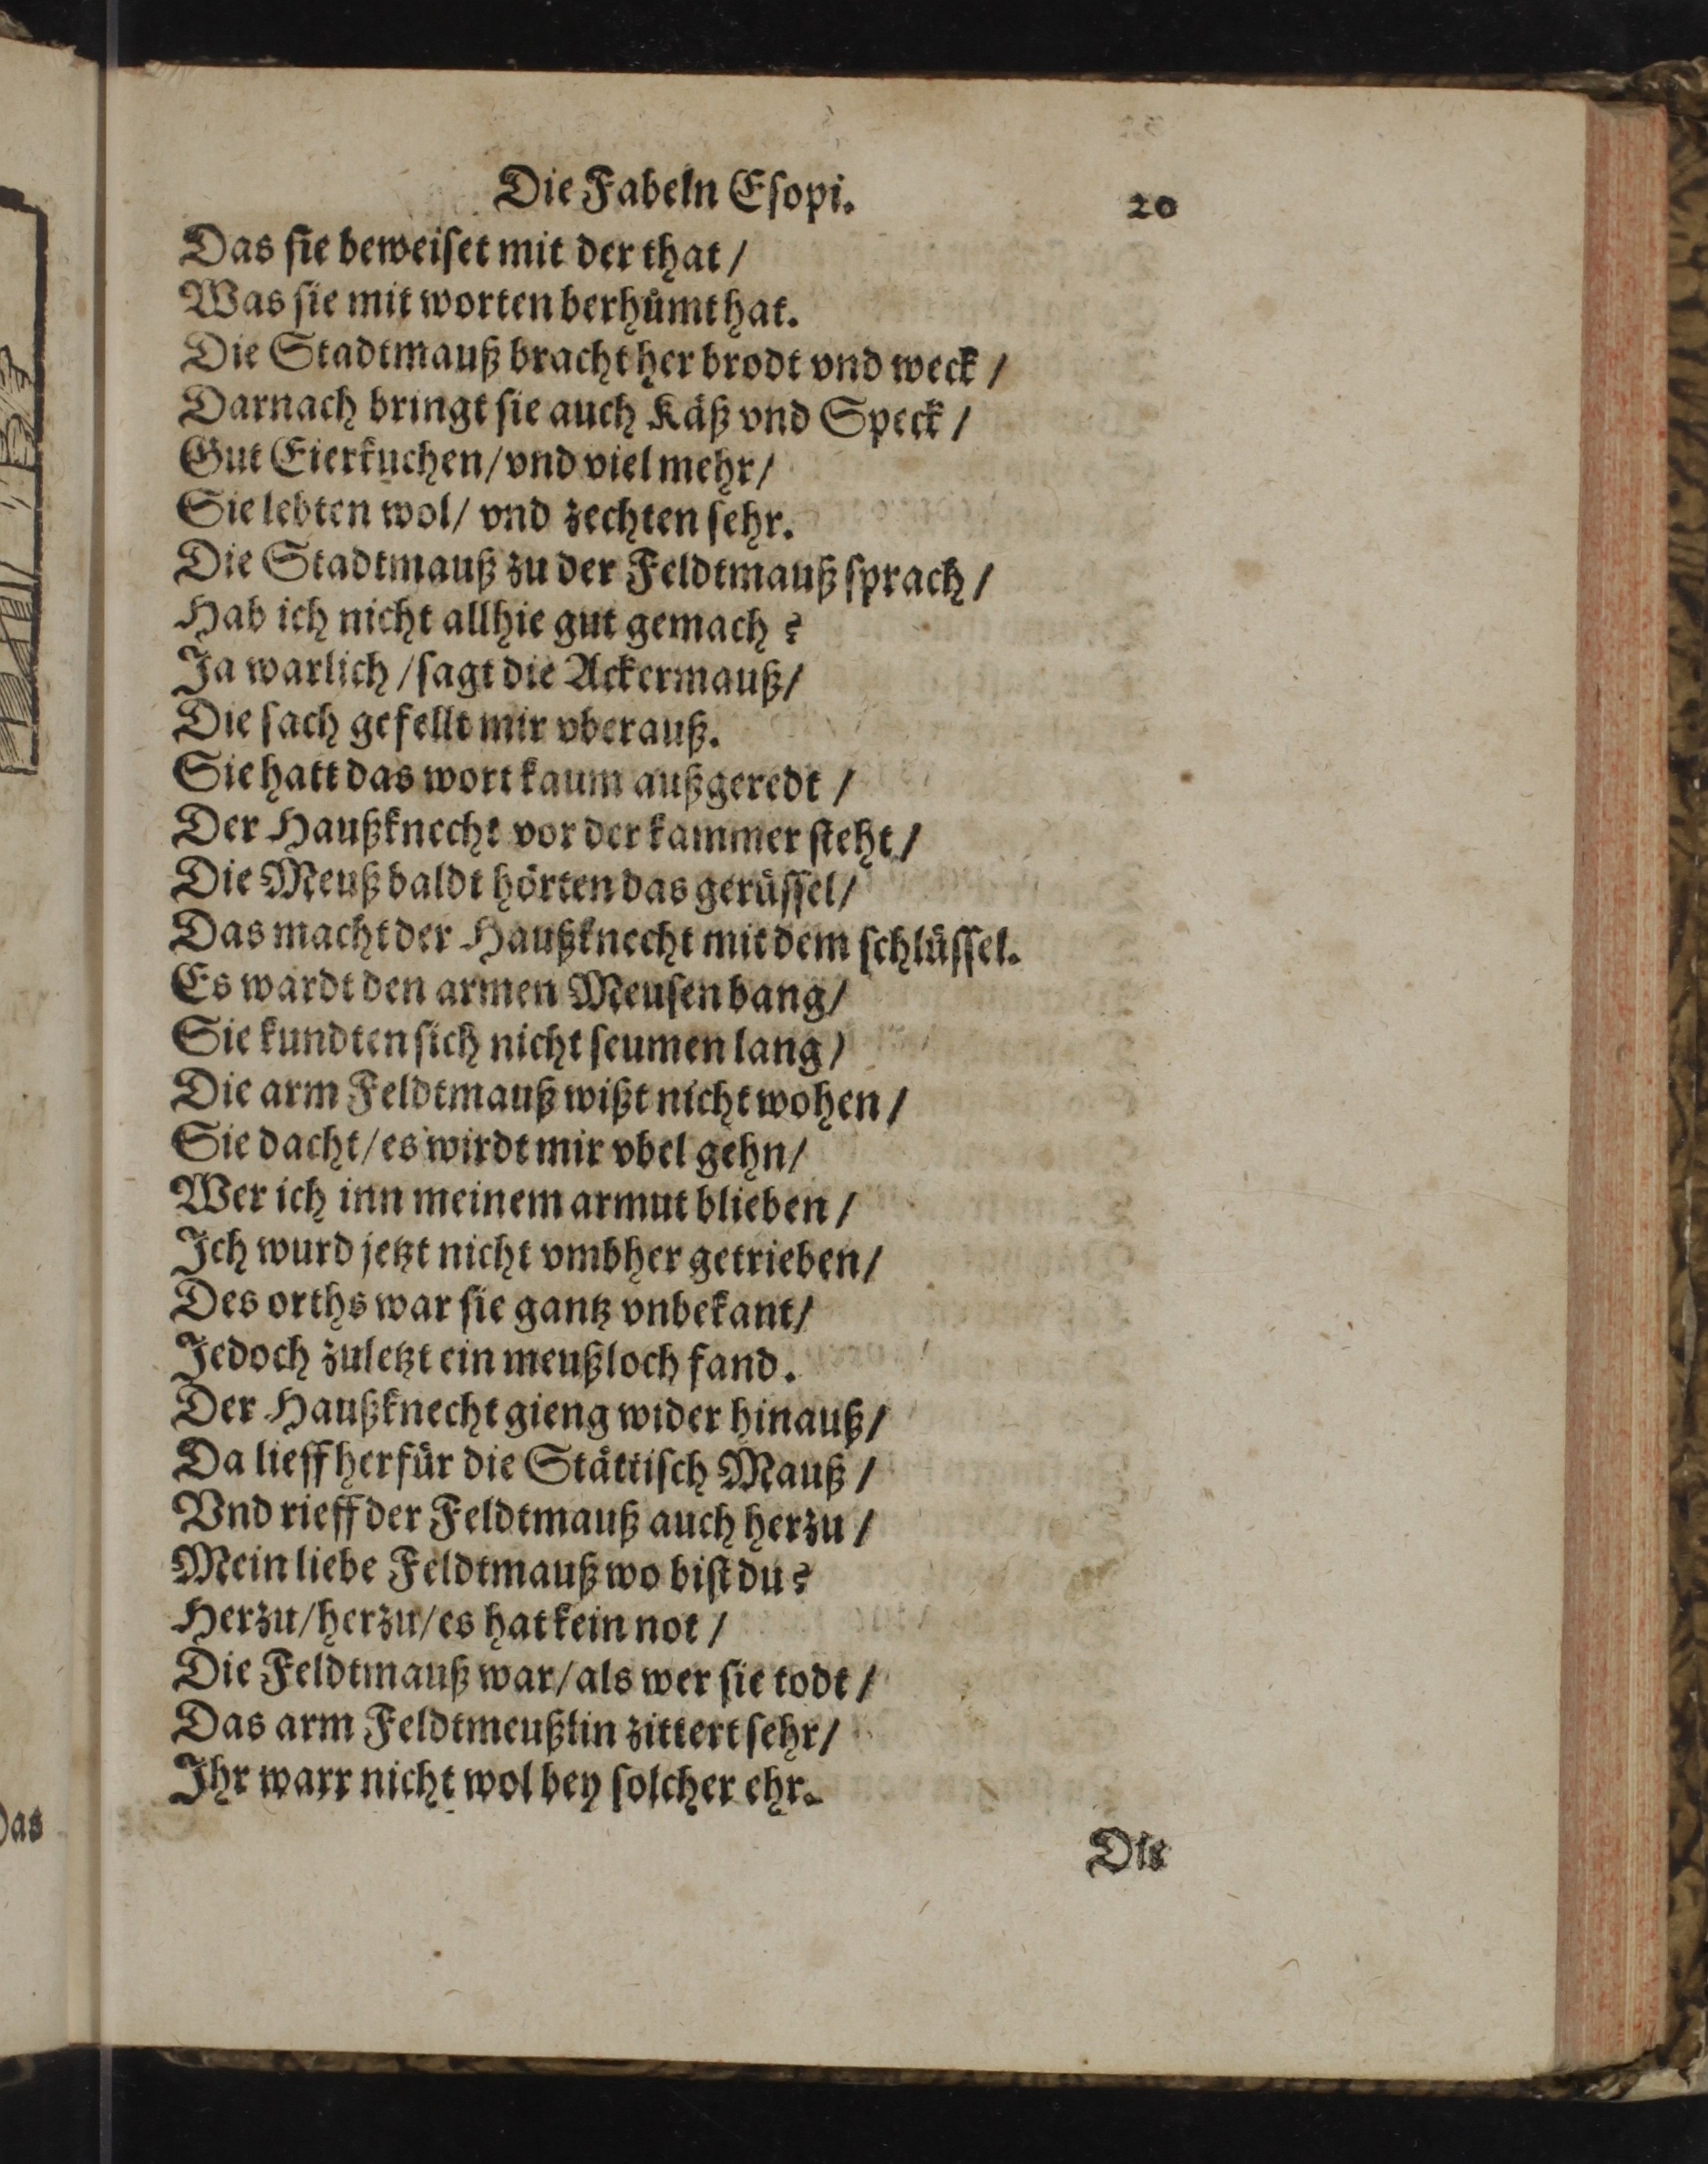 Die Fabeln Eſopi. 20
Das ſie beweiſet mit der that /
Was ſie mit worten berhuͤmt hat.
Die Stadtmauß bracht her brodt vnd weck /
Darnach bringt ſie auch Kaͤß vnd Speck /
Gut Eierkuchen / vnd viel mehr /
Sie lebten wol / vnd zechten ſehr.
Die Stadtmauß zu der Feldtmauß ſprach /
Hab ich nicht allhie gut gemach ?
Ja warlich / ſagt die Ackermauß /
Die ſach gefellt mir vberauß.
Sie hatt das wort kaum außgeredt /
Der Haußknecht vor der kammer ſteht /
Die Meuß baldt hoͤrten das geruͤſſel /
Das macht der Haußknecht mit dem ſchluͤſſel.
Es wardt den armen Meuſen bang /
Sie kundten ſich nicht ſeumen lang )
Die arm Feldtmauß wißt nicht wohen /
Sie dacht / es wirdt mir vbel gehn /
Wer ich inn meinem armut blieben /
Ich wurd jetzt nicht vmbher getrieben /
Des orths war ſie gantz vnbekant /
Jedoch zuletzt ein meußloch fand.
Der Haußknecht gieng wider hinauß /
Da lieff herfuͤr die Staͤttiſch Mauß /
Vnd rieff der Feldtmauß auch herzu /
Mein liebe Feldtmauß wo biſt du ?
Herzu / herzu / es hat kein not /
Die Feldtmauß war / als wer ſie todt /
Das arm Feldtmeußlin zittert ſehr /
Ihr warr nicht wol bey ſolcher ehr.
Die
Das